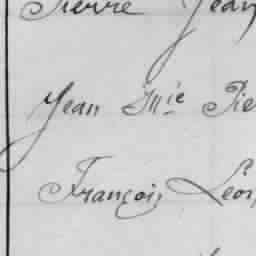 Pierre Jean
Jean Mie Pie
François Léon